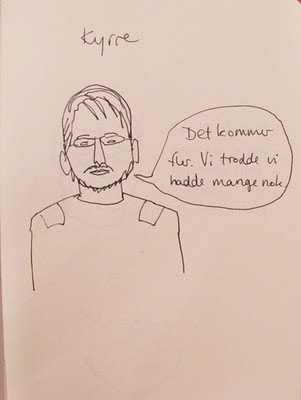 Kyrre
Det kommer
fler. Vi trodde vi
hadde mange nok.